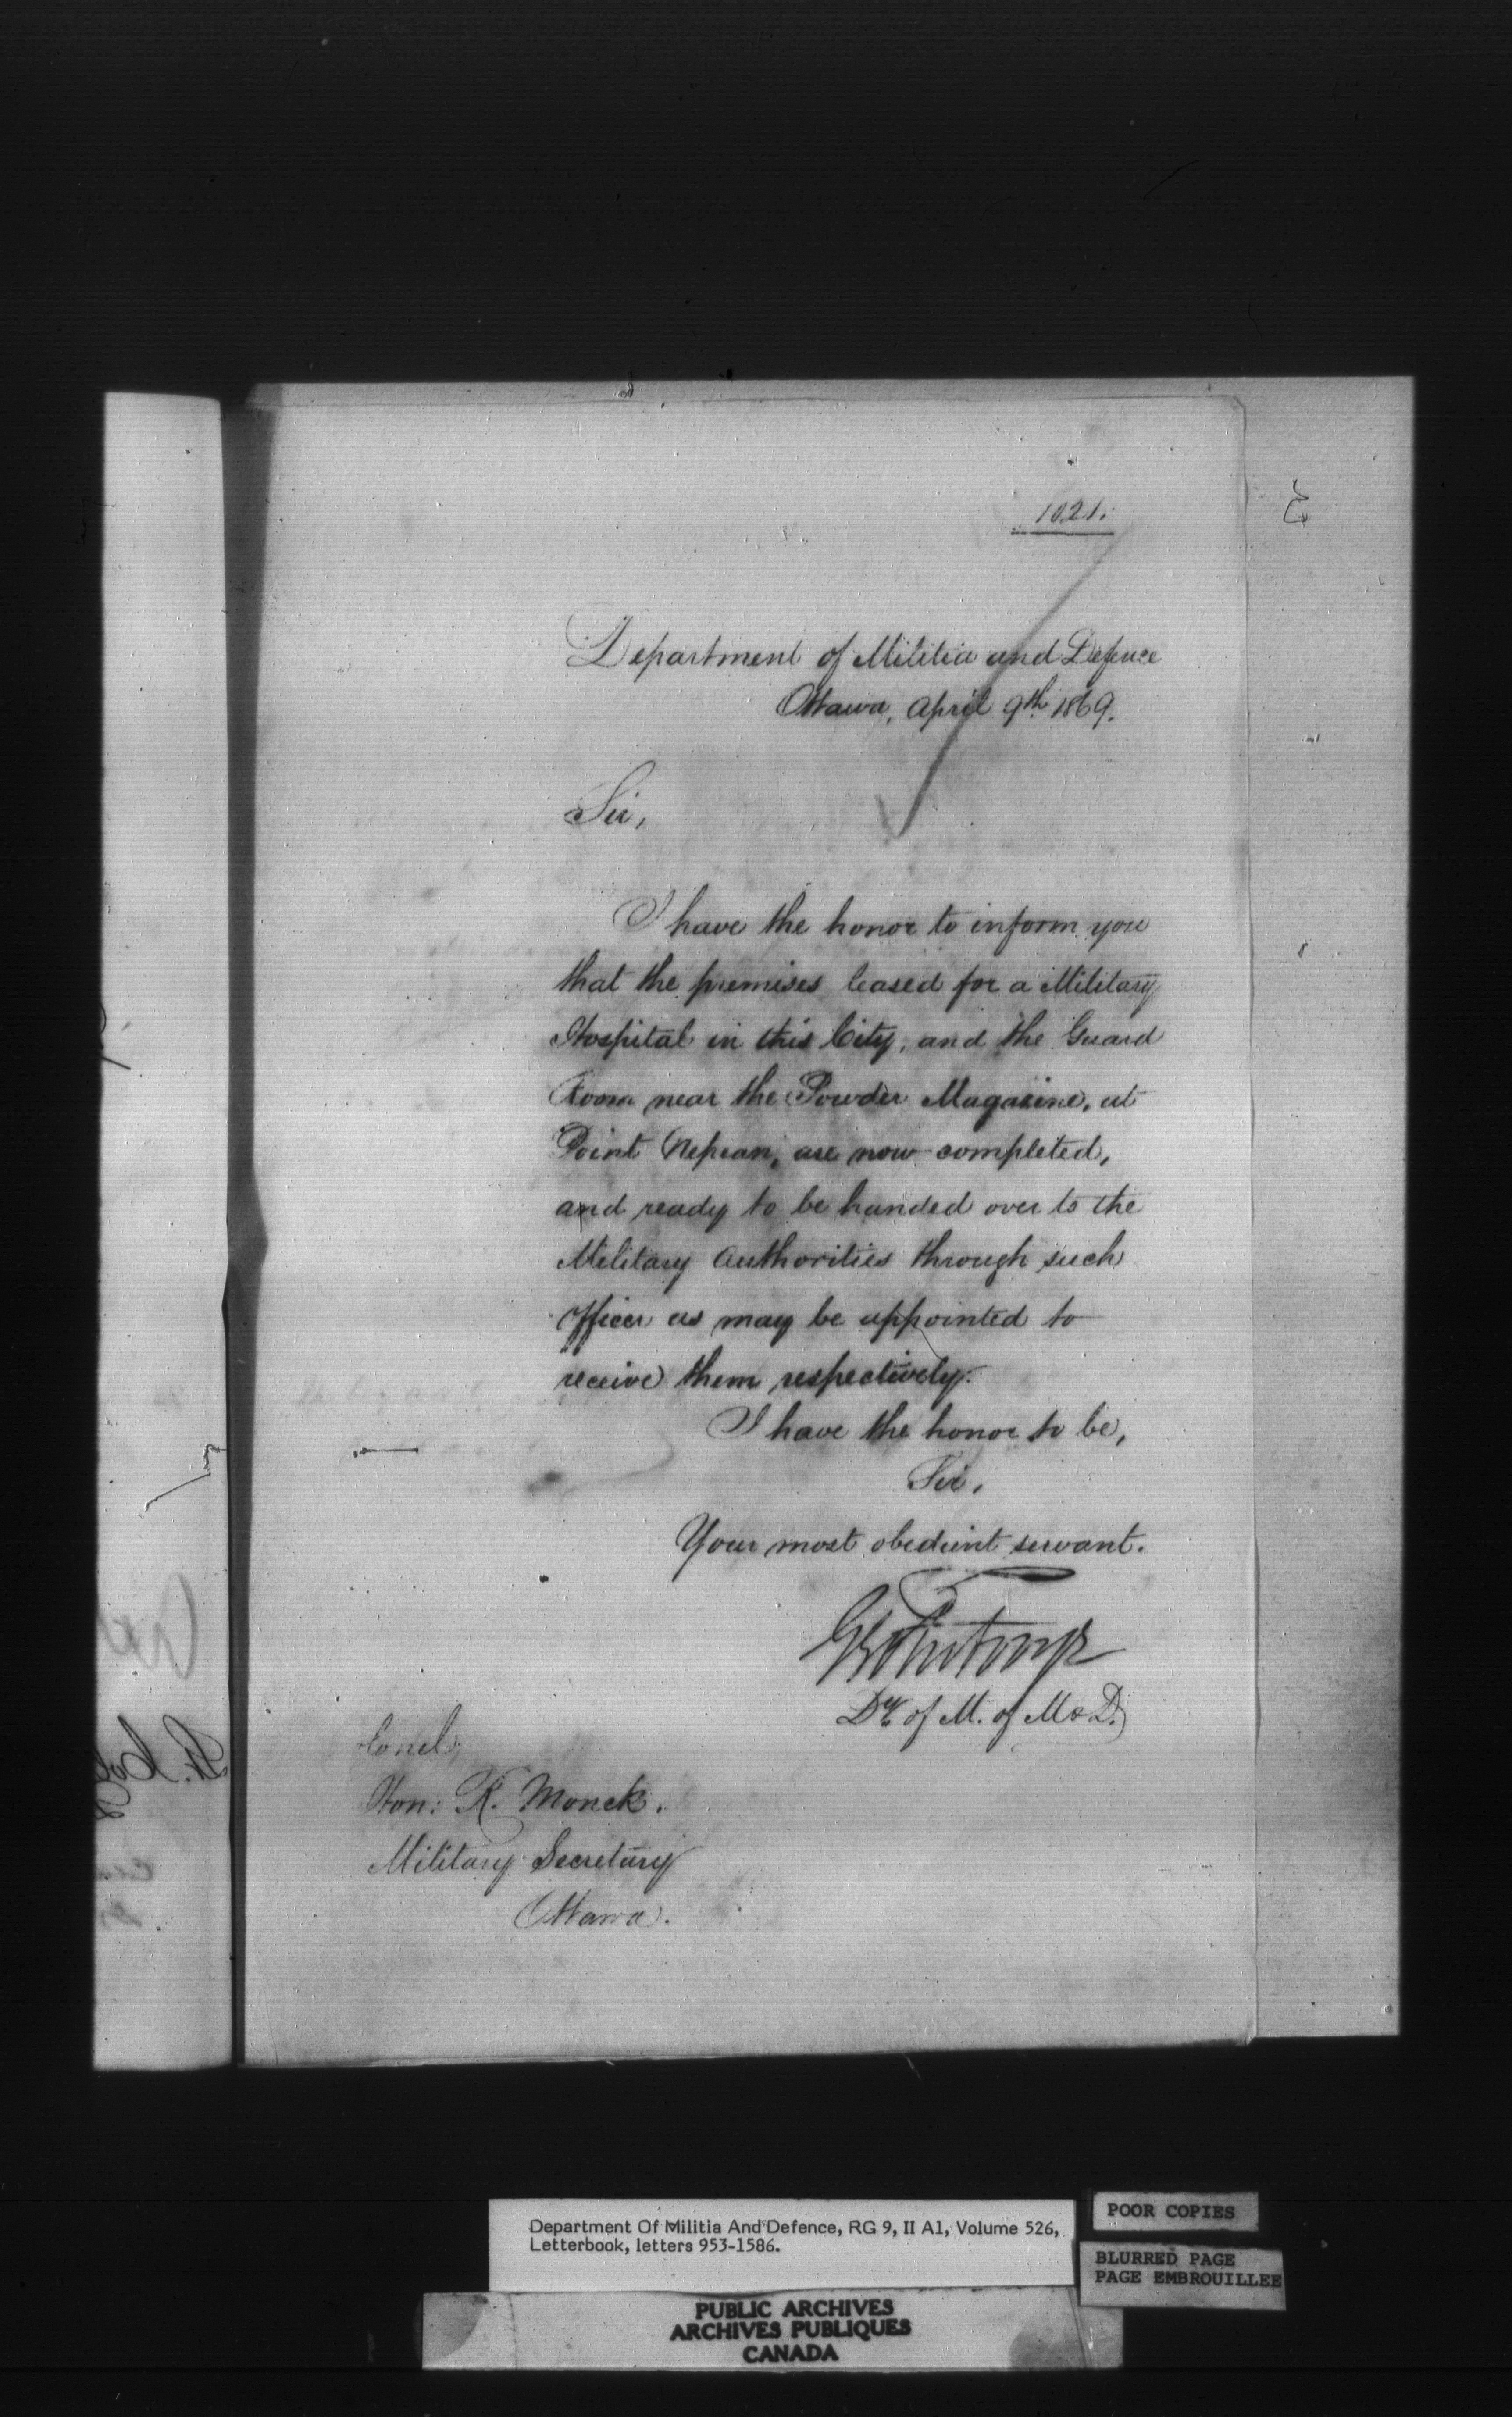 1021.
Department of Militia and Defence
Ottawa, April 9th 1869.
Sir,
I have the honor to inform you
that the premises leased for a Military
Hospital in this City, and the Guard
Room near the Powder Magazine, at
Point Nepean, are now completed,
and ready to be handed over to the
Military Authorities through such
Officer as may be appointed to
receive them respectively.
I have the honor to be,
Sir,
Your most obedient servant.
of M. of M & D.
lonel
Hon: R. Monck.
Military Secretary
Ottawa.
Department Of Militia And Defence, RG 9, II A1, Volume 526,
Letterbook, letters 953-1586.
POOR COPIES
BLURRED PAGE
PAGE EMBROUILLEE
PUBLIC ARCHIVES
ARCHIVES PUBLIQUES
CANADA